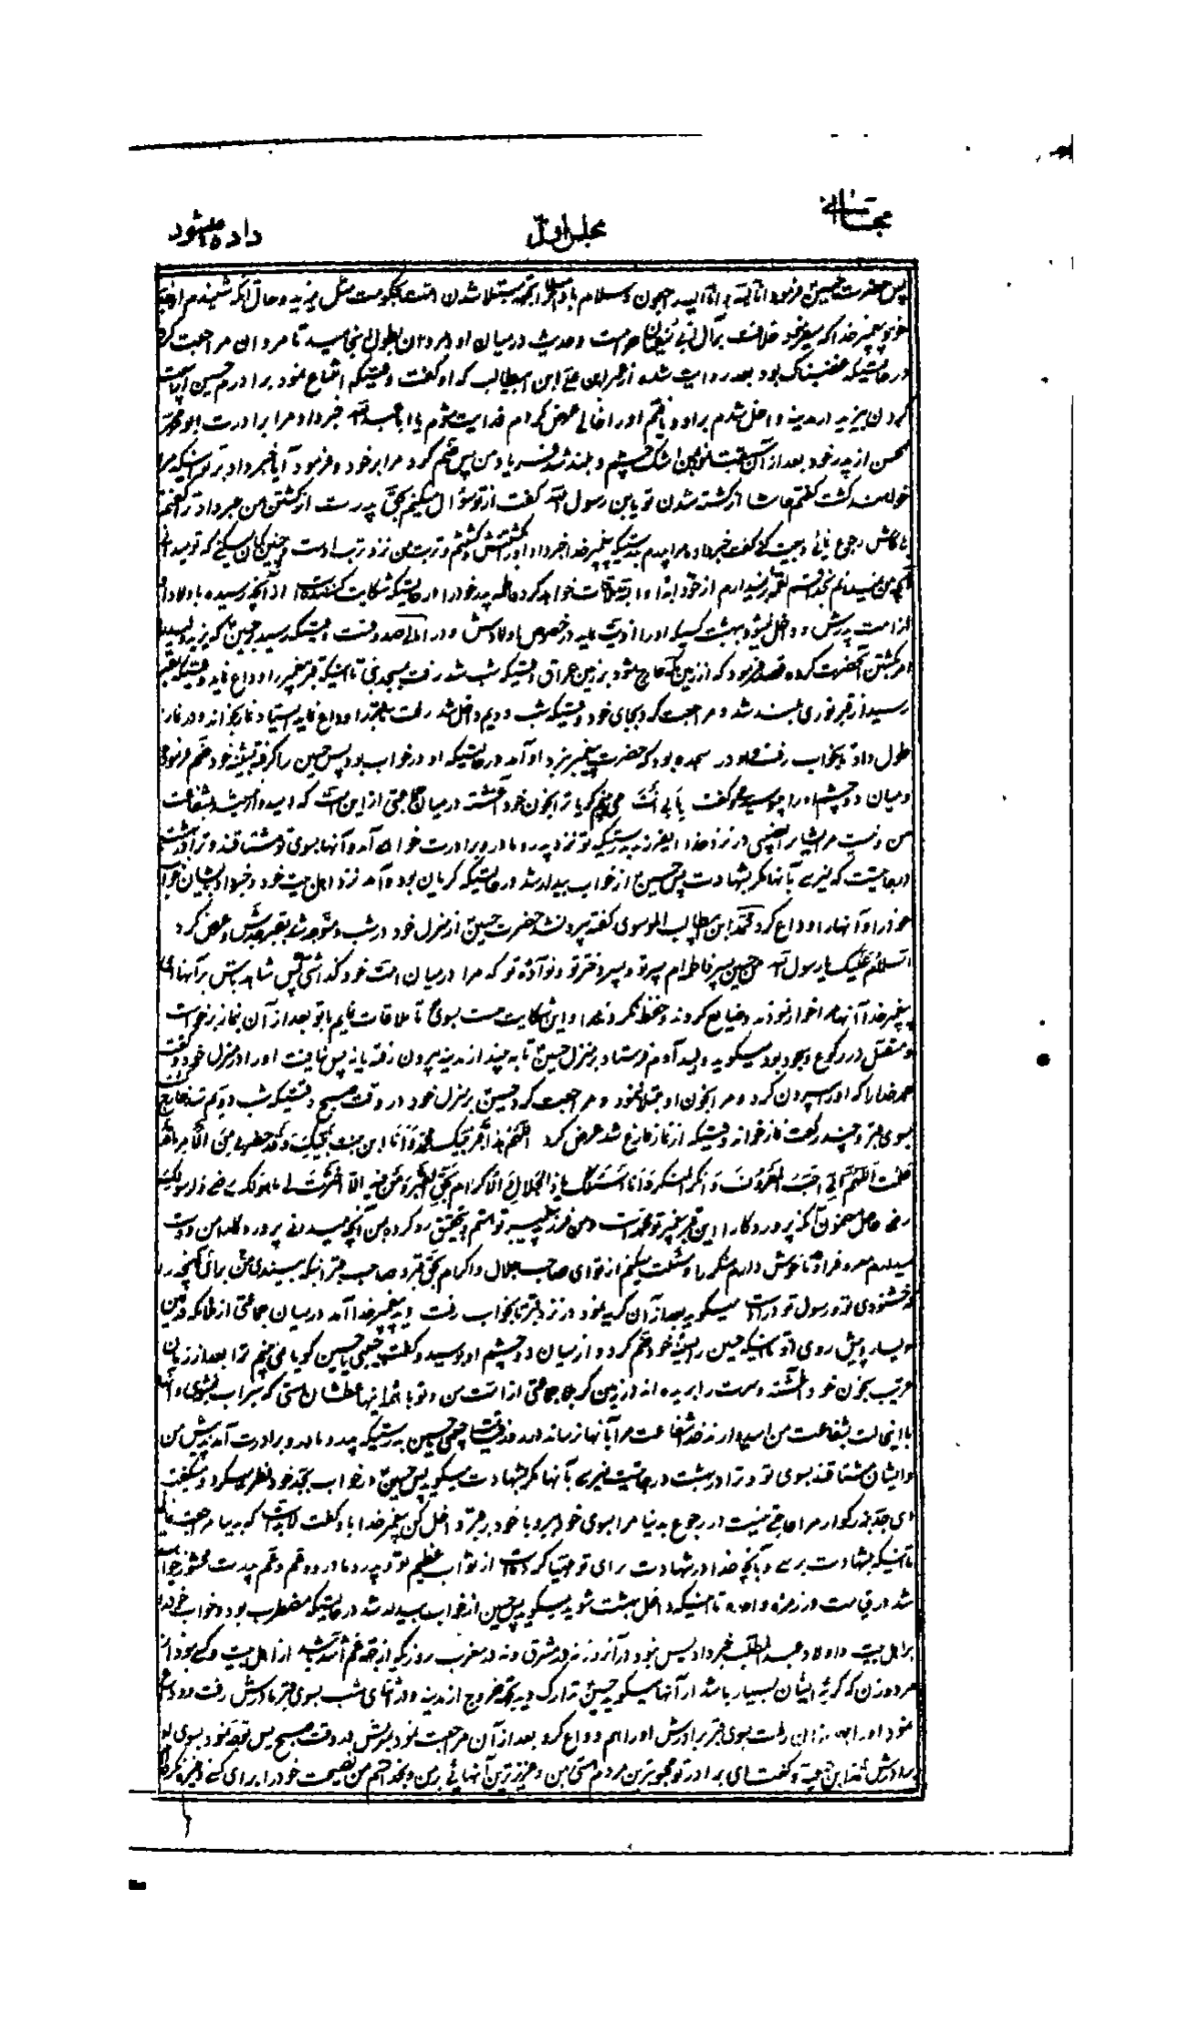 مجلس اول
پس حضرت حسین فرمود انا لله و انا الیه راجعون و سلام باد بر اسلام بجهة مبتلا شدن امت بحکومت مثل یزید و حال آنکه شنیدم از
پیغمبر خدا که میفرمود خلافت بر آل ابی سفیان حرامست و حدیث در میان او و مروان بطول انجامید تا مروان مراجعت کرد
در حالتیکه غضبناک بود بعد روایت شده از عمر ابن علی ابن ابیطالب که او گفت وقتیکه امتناع نمود برادرم حسین از بیعت
کردن یزید در مدینه داخل شدم بر او و یافتم او را خالی عرض کردم فدایت شوم یا ابا عبد الله خبر داد مرا برادرت ابو محمد
حسن از پدر خود بعد از آن سبقت نمود بمن اشک چشم و بلند شد فریاد من پس ضم کرد مرا بر خود و فرمود آیا خبر داد بر تو اینکه من
خواهم گشت گفتم حاشا از کشته شدن تو یابن رسول الله گفت از تو سؤال میکنم بحق پدرت از کشتن من خبر داد ترا گفتم
بلی کاش رجوع نمائی و بیعت کنی گفت خبر داد مرا پدرم بدرستیکه پیغمبر خدا خبر داد او را بکشتنش و کشتنم و تربت من نزد تربت اوست و چنین گمان میکنی که تو میدانی
آنچه من نمیدانم بخدا قسم
از امت پدرش و داخل نمیشود بهشت کسیکه او را اذیت
امر بکشتن آنحضرت کرده قصد فرمود که از زمین حجاز بیرون شود بزمین عراق وقتیکه شب شد رفت بمسجد نبی تا اینکه قبر پیغمبر را وداع نماید وقتیکه بقبر
رسید از قبر نوری بلند شد و مراجعت کرد بجای خود وقتیکه شب دویم داخل شد رفت
طول داد تا بخواب رفت و او در سجده بود که حضرت پیغمبر نزد او آمد در حالتیکه او در خواب بود پس حسین را گرفته بسینه خود ضم فرمود
و میان دو چشم او را بوسید و گفت بابی انت می بینم گویا ترا بخون خود آغشته در میان جماعتی از این امت که امیدوارند شفاعت
من و نیست مر ایشان را نصیبی در نزد خدا ای فرزند بدرستیکه تو نزد پدر و مادر و برادرت خواهی آمد و آنها بسوی تو مشتاقند و ترا در بهشت
درجاتیست که نمیرسی بآنها مگر بشهادت پس حسین از خواب بیدار شد در حالتیکه گریان بود و آمد نزد اهل بیت خود و خبر داد بایشان خواب
خود را و آنها را وداع کرد محمد ابن ابیطالب الموسوی گفته بیرون شد حضرت حسین از منزل خود در شب و متوجه شد بقبر جدش و عرض کرد
السلام علیک یا رسول الله من حسین پسر فاطمه ام پسر تو و پسر دختر تو و نوادهٔ تو که مرا در میان امت خود گذاشتی پس شاهد باش بر آنها ای
پیغمبر خدا آنها مرا خوار نمودند و ضایع کردند و حفظ نکردند مرا و این شکایت منست بسوی تو تا ملاقات نمایم با تو بعد از آن نماز برخواست
و متصل در رکوع و سجود بود میگوید ولید آدم فرستاد بمنزل حسین تا به بیند از مدینه بیرون رفته یا نه پس نیافت او را در منزل خود گفت
حمد خدا را که او را بیرون کرد و مرا بخون او مبتلا ننمود و مراجعت کرد حسین بمنزل خود در وقت صبح وقتیکه شب دویم شد خارج
بسوی قبر و چند رکعت نماز خواند وقتیکه از نماز فارغ شد عرض کرد اللهم هذا قبر نبیک محمد و انا ابن بنت نبیک و قد حضرنی من الامر ما قد
علمت اللهم انی احب المعروف و انکر المنکر و انا اسئلک یا ذا الجلال و الاکرام بحق القبر و من فیه الا اخترت لی ما هو لک رضی و لرسولک
رضی حاصل مضمون آنکه پروردگارا این قبر پیغمبر تو محمد است و من فرزند پیغمبر تو هستم و بتحقیق رو کرده بمن آنچه میدانی پروردگارا من دوست
میدارم معروف را و ناخوش دارم منکر را و مسئلت میکنم از تو ای صاحب جلال و اکرام بحق قبر و صاحب قبر اینکه
خشنودی تو و رسول تو در آنست میگوید بعد از آن گریه نمود در نزد قبر تا بخواب رفت دید پیغمبر خدا آمد در میان جماعتی از ملائکه در یمین
و یسار و پیش روی او تا اینکه حسین را بسینه خود ضم کرد و از میان دو چشم او بوسید و گفت حبیبی یا حسین گویا می بینم ترا بعد از زمان
قریب بخون خود آغشته و سرت را بریده اند در زمین کربلا جماعتی از امت من و تو با اینها عطشان هستی که سیراب نمیشوی و آنها
با این حالت بشفاعت من امیدوارند خدا شفاعت مرا بآنها نرساند در قیامت حبیبی حسین بدرستیکه پدر و مادر و برادرت آمدند پیش من
و ایشان مشتاقند بسوی تو و ترا در بهشت درجاتیست نمیرسی بآنها مگر بشهادت میگوید پس حسین در خواب بجد خود نظر میکرد و میگفت
ای جد بزرگوار مرا حاجتی نیست در رجوع بدنیا مرا بسوی خود ببر و با خود در قبر داخل کن پیغمبر خدا باو گفت لابد است که بدنیا مراجعت نمائی
تا اینکه بشهادت برسی و بآنچه خدا در شهادت برای تو مهیا کرده است از ثواب عظیم تو و پدر و مادر و عم و عم پدرت محشور خواهید
شد در قیامت در زمره واحده تا اینکه داخل بهشت شوید میگوید پس حسین از خواب بیدار شد در حالتیکه مضطرب بود و خواب خود را
بر اهل بیت و اولاد عبد المطلب خبر داد پس نبود در آنروز نه در مشرق و نه در مغرب روزیکه از جهة غم اشد باشد از اهل بیت و کسی نبود از
مرد و زن که گریهٔ ایشان بسیار باشد از آنها میگوید حسین تدارک دید بجهة خروج از مدینه و در اثنای شب بسوی قبر مادرش رفت و وداع
نمود او را بعد از آن رفت بسوی قبر برادرش او را هم وداع کرد بعد از آن مراجعت نمود بمنزلش در وقت صبح پس توجه نمود بسوی او
برادرش محمد ابن حنفیه و گفت ای برادر تو محبوبترین مردم هستی بمن و عزیزترین آنهائی بر من و بخدا قسم من نصیحت خود را برای کسی ذخیره نکرده